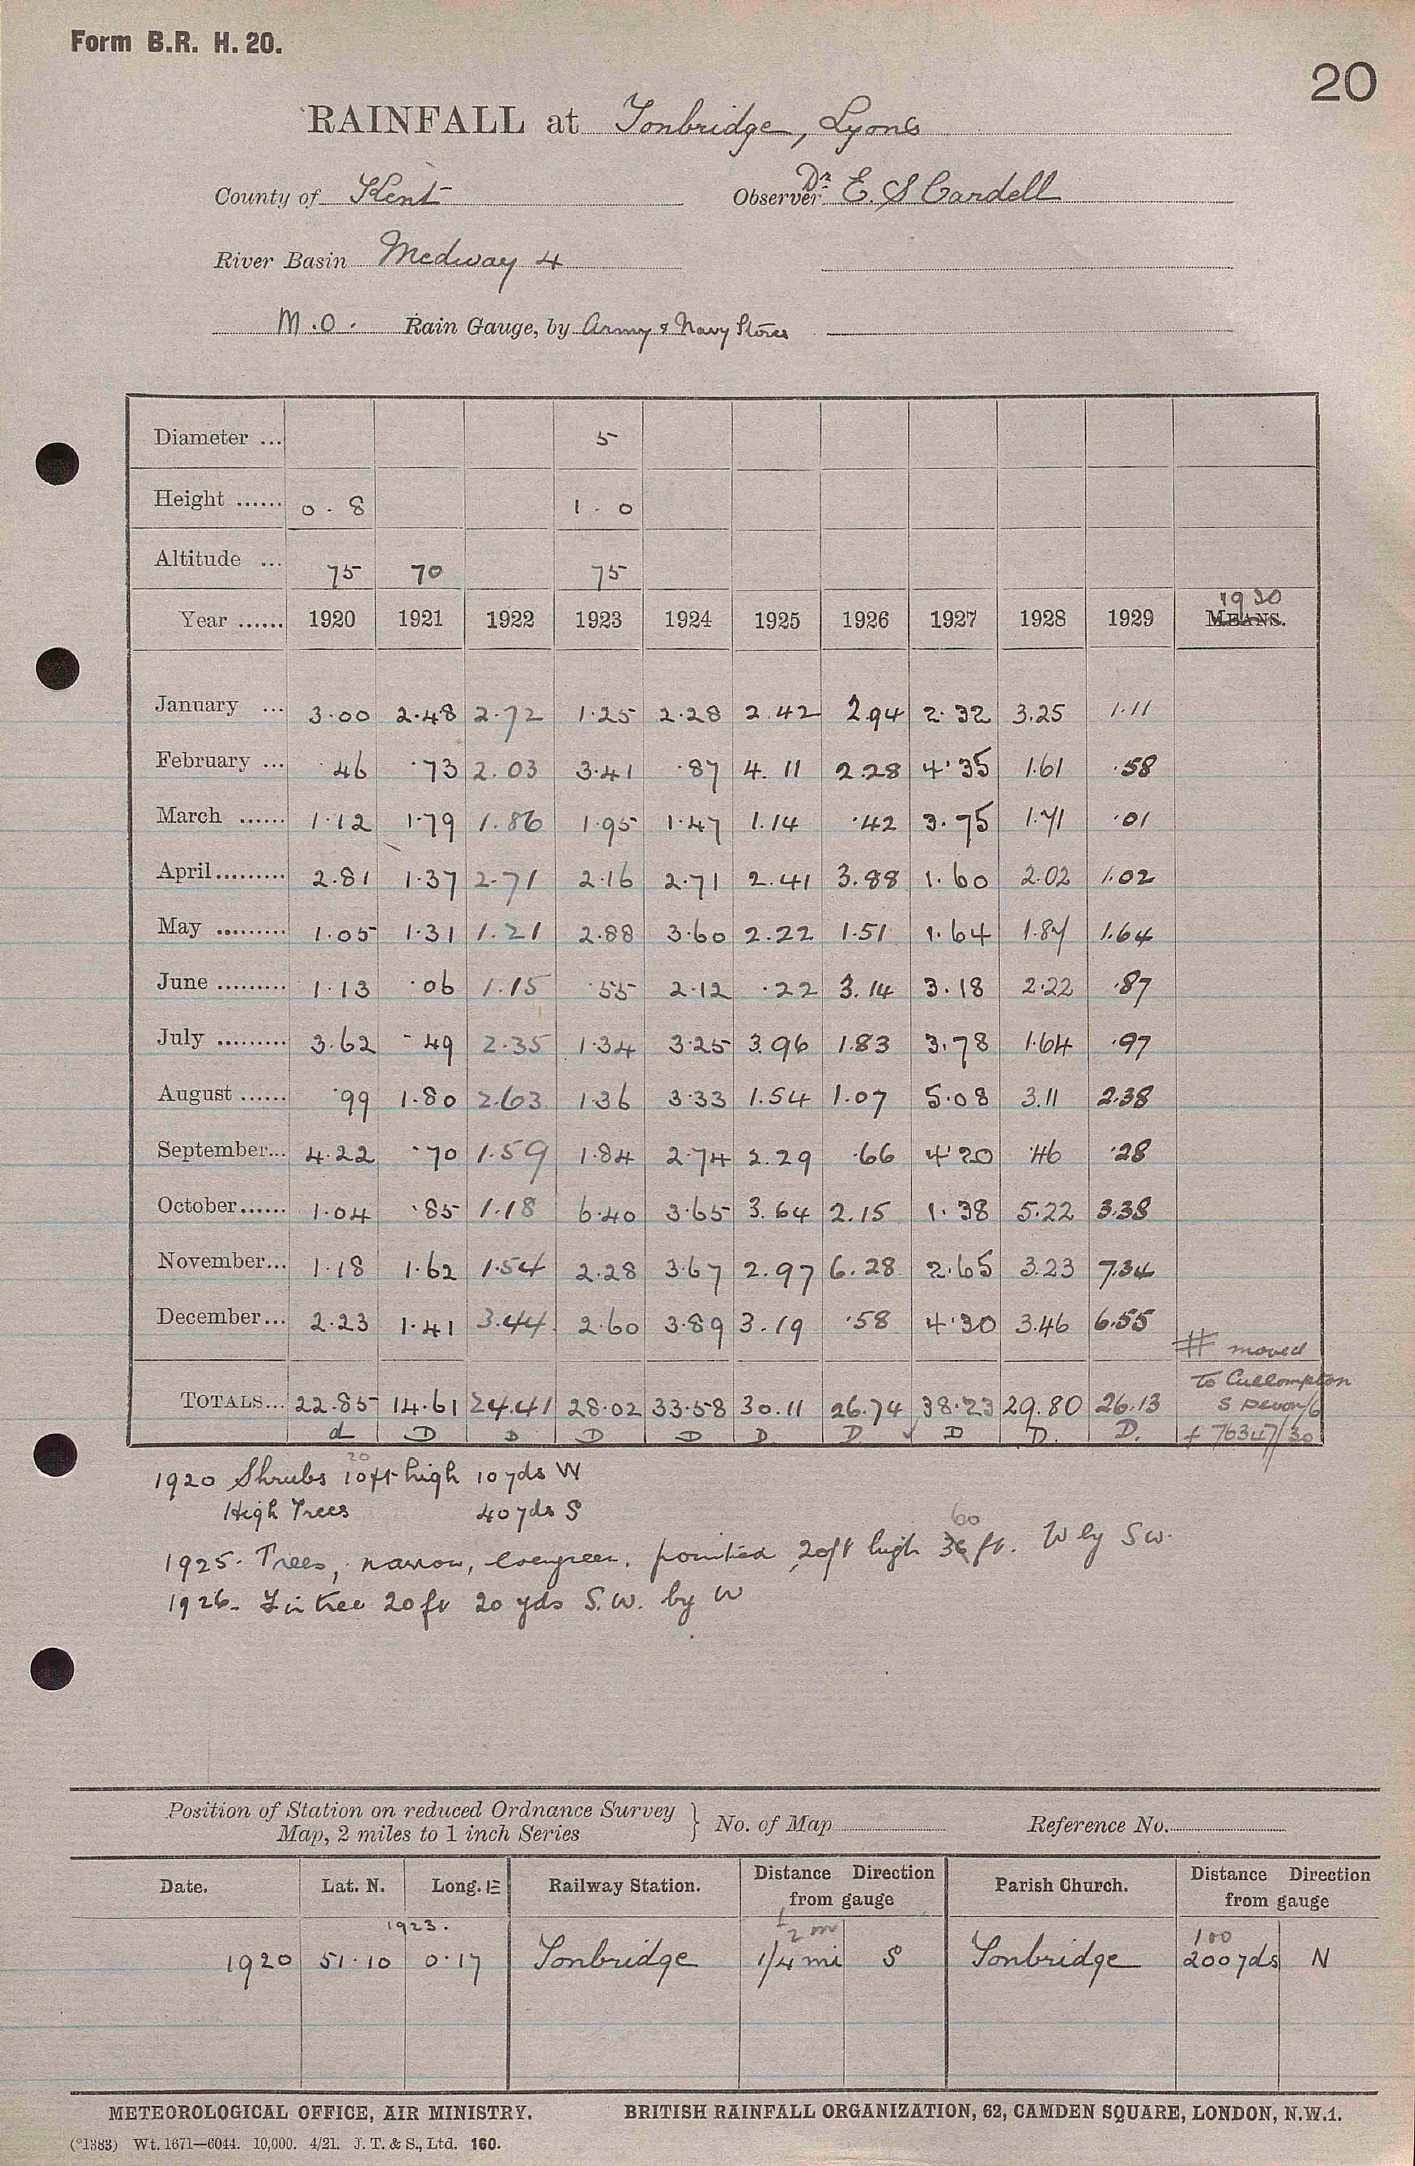 Form B.R. H. 20.
20
RAINFALL at Tonbridge, Lyons
County of Kent Observer Dr E. S Cardell
River Basin Medway 4
M.O. Rain Gauge, by Army & Navy Stores
Diameter ... 5
Height ...... 0.8 1.0
Altitude ... 75 70 75
Year ...... 1920 1921 1922 1923 1924 1925 1926 1927 1928 1929 MEANS. 1930
January ... 3.00 2.48 2.72 1.25 2.28 2.42 2.94 2.32 3.25 1.11
February ... .46 .73 2.03 3.41 .87 4.11 2.28 4.35 1.61 .58
March ...... 1.12 1.79 1.86 1.95 1.47 1.14 .42 3.75 1.71 .01
April......... 2.81 1.37 2.71 2.16 2.71 2.41 3.88 1.60 2.02 1.02
May ......... 1.05 1.31 1.21 2.88 3.60 2.22 1.51 1.64 1.87 1.64
June ......... 1.13 .06 1.15 .55 2.12 .22 3.14 3.18 2.22 .87
July ......... 3.62 .49 2.35 1.34 3.25 3.96 1.83 3.78 1.64 .97
August ...... .99 1.80 2.63 1.36 3.33 1.54 1.07 5.08 3.11 2.38
September... 4.22 .70 1.59 1.84 2.74 2.29 .66 4.20 .46 .28
October...... 1.04 .85 1.18 6.40 3.65 3.64 2.15 1.38 5.22 3.38
November... 1.18 1.62 1.54 2.28 3.67 2.97 6.28 2.65 3.23 7.34
December... 2.23 1.41 3.44 2.60 3.89 3.19 .58 4.30 3.46 6.55
# moved
to Cullompton
S Devon/6
+ 76347/30
TOTALS... 22.85 14.61 24.41 28.02 33.58 30.11 26.74 38.23 29.80 26.13
d D D D D D D ✓ D D. D.
1920 Shrubs 10ft high 10yds W
20
High Trees 40yds S
1925. Trees, narrow, evergreen, pointed 20ft high 36 ft. W by SW.
60
1926. Fir tree 20ft 20 yds S.W. by W
Position of Station on reduced Ordnance Survey
Map, 2 miles to 1 inch Series } No. of Map Reference No.
Date. Lat. N. Long. E Railway Station. Distance Direction from gauge Parish Church. Distance Direction from gauge
1923. ½ m 100
1920 51.10 0.17 Tonbridge 1/4 mi S Tonbridge 200yds N
METEOROLOGICAL OFFICE, AIR MINISTRY. BRITISH RAINFALL ORGANIZATION, 62, CAMDEN SQUARE, LONDON, N.W.1.
(*1383) Wt. 1671—6044. 10,000. 4/21. J. T. & S., Ltd. 160.